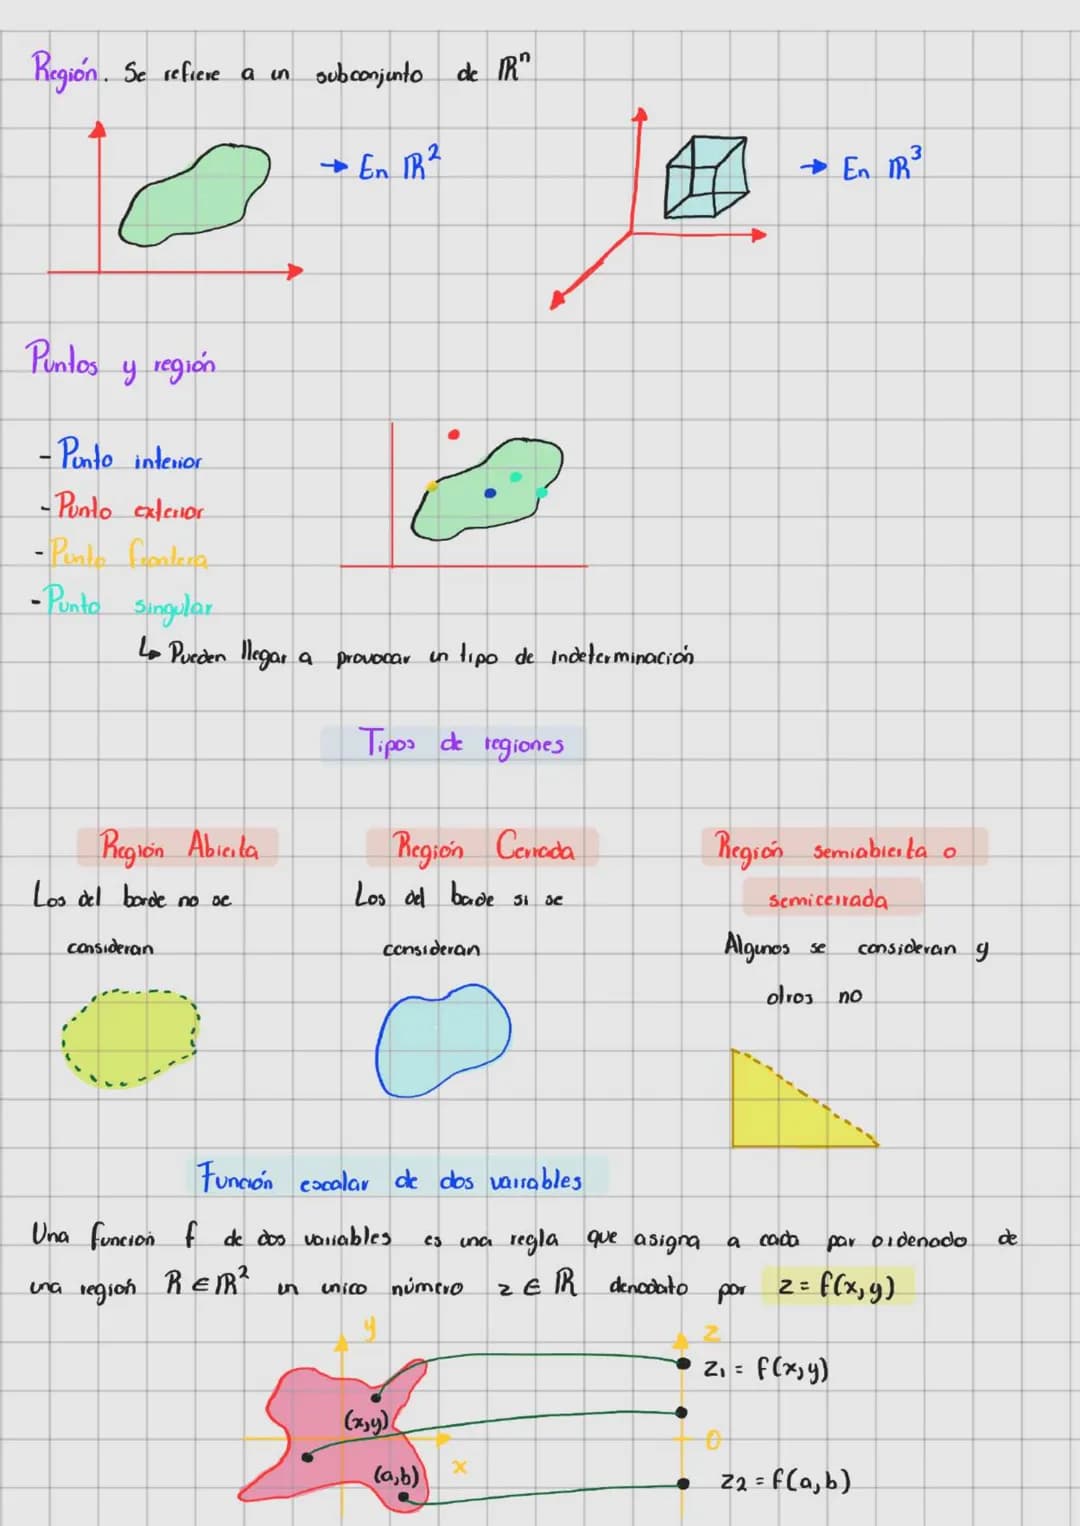 Región. Se refiere a un subconjunto de ℝⁿ
→ En ℝ²
→ En ℝ³
Puntos y región
- Punto interior
- Punto exterior
- Punto frontera
- Punto singular
↳ Pueden llegar a provocar un tipo de indeterminación
Tipos de regiones
Región Abierta
Los del borde no se
consideran
Región Cerrada
Los del borde si se
consideran
Región semiabierta o
semicerrada
Algunos se consideran y
otros no
Función escalar de dos variables
Una función f de dos variables es una regla que asigna a cada par ordenado de
una región R ∈ ℝ² un unico número z ∈ ℝ denodato por z = f(x,y)
y
z
z₁ = f(x,y)
(x,y)
0
x
(a,b)
z2 = f(a,b)